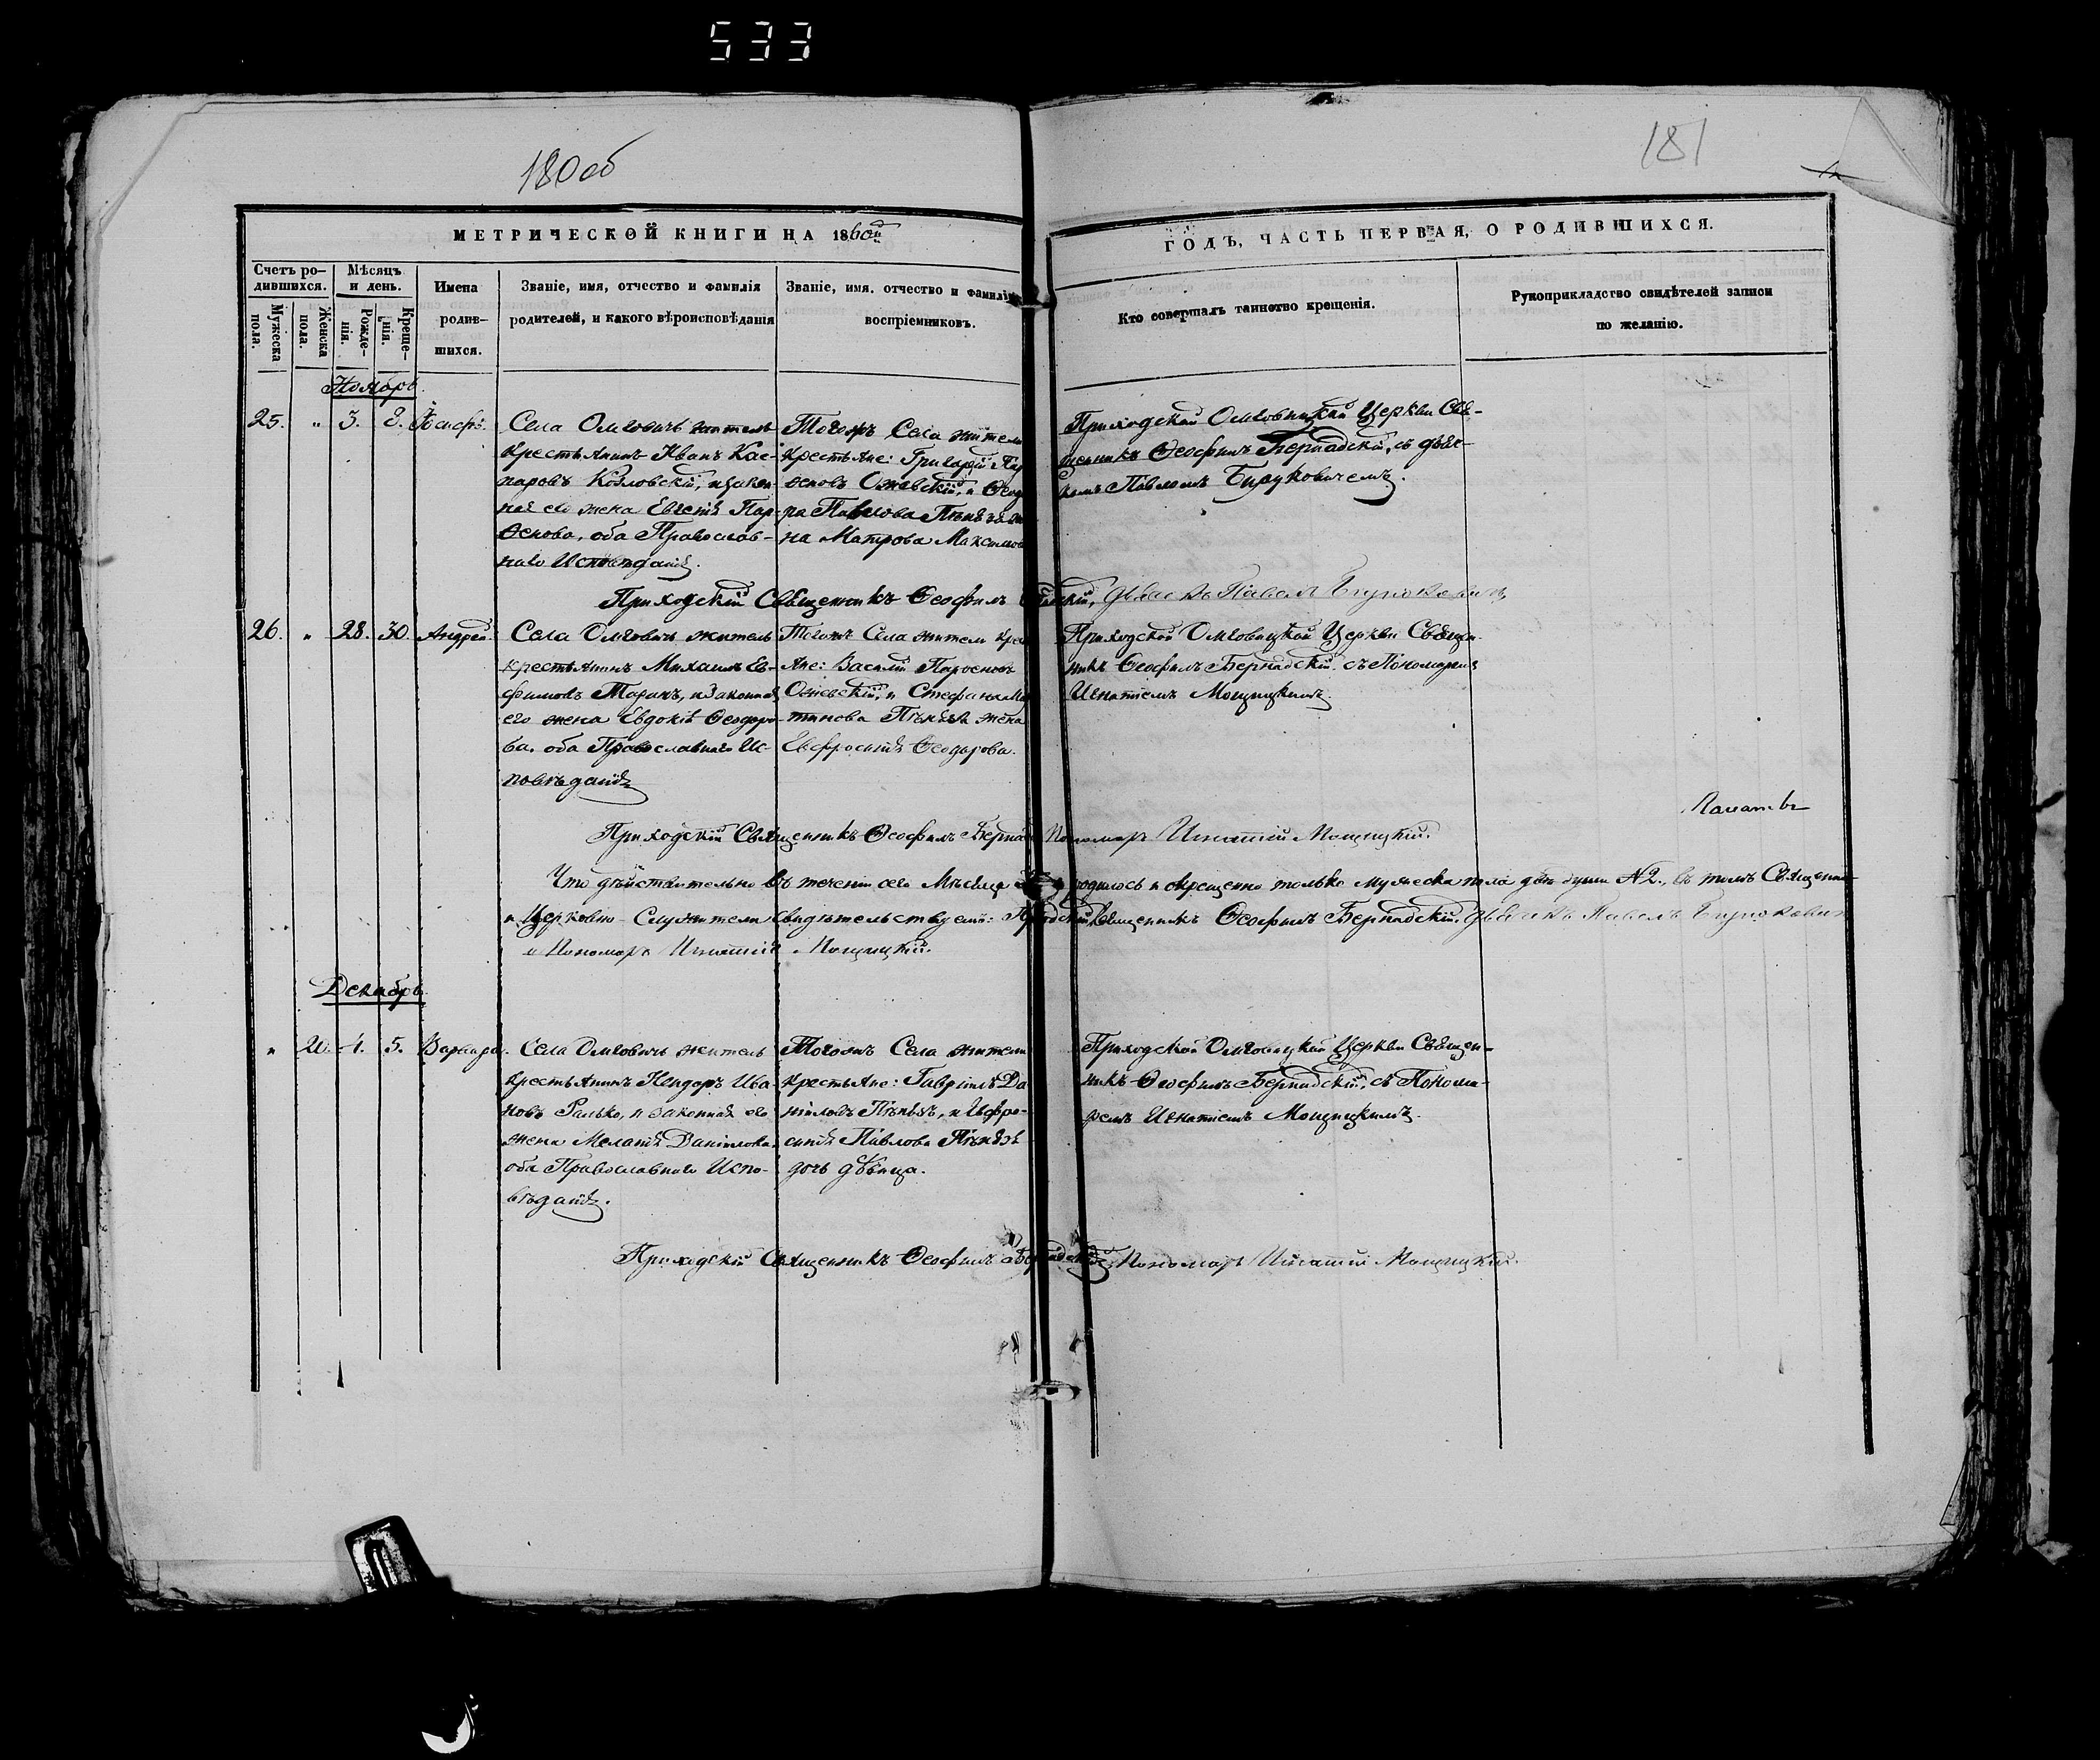 533
180об
181
МЕТРИЧЕСКОЙ КНИГИ НА 1860й
ГОДЪ, ЧАСТЬ ПЕРВАЯ, О РОДИВШИХСЯ.
Счетъ родившихся.
Мужеска пола.
Женска пола.
Мѣсяцъ и день.
Рожденія.
Крещенія.
Имена родившихся.
Званіе, имя, отчество и фамилія
родителей, и какого вѣроисповѣданія
Званіе, имя. отчество и фамилія
воспріемниковъ.
Кто совершалъ таинство крещенія.
Рукоприкладство свидѣтелей записи
по желанію.
Ноябрь.
25. " 3. 8. Іосифъ.
Села Омговичъ житель
крестьянинъ Иванъ Кас-
паровъ Козловскій, и закон-
ная его жена Евгенія Пар-
ѳенова, оба Православ-
наго Исповѣданія.
Тогожъ Села жители
крестьяне: Григорій Пар
ѳеновъ Ожевскій, и Ѳеод
ра Павлова
на Матрона Максимов
Приходской Омговицкой Церкви Свя-
щенникъ Ѳеофилъ Бернадскій, съ дьяч-
комъ Павломъ Бируковичемъ.
Приходскій Священникъ Ѳеофилъ дьячекъ Павелъ Бируковичъ
26. " 28. 30. Андрей.
Села Омговичъ житель
крестьянинъ Михаилъ Ев-
фимовъ Таранъ, и Законная
его жена Евдокія Ѳеодоро-
ва, оба Православнаго Ис-
повѣданія
Тогожъ Села жители кре
яне: Василій Парѳеновъ
Ожевскій, и Стефана Ма
тинова жена
Евфросинія Ѳеодорова.
Приходской Омговицкой Церкви Священ-
никъ Ѳеофилъ Бернадскій, съ Пономаремъ
Игнатіемъ Мощицкимъ.
Приходскій Священникъ Ѳеофилъ Бернад Пономарь Игнатій Мощицкій.
Что дѣйствительно въ теченіи сего Мѣсяца родилось и окрещенно только мужеска пола двѣ души №2., въ томъ Священно
и Церковно-Служители свидѣтельствуемъ: Приходскій Священникъ Ѳеофилъ Бернадскій, дьячекъ Павелъ Бируковичъ
и Пономарь Игнатій Мощицкій.
Декабрь.
" 20. 4. 5. Варвара.
Села Омговичъ житель
крестьянинъ Ива-
новъ Ралько, и законная его
жена Меланія Даніилова
оба Православнаго Испо-
вѣданія.
Тогожъ Села жители
крестьяне: Гавріилъ Да
ніиловъ и Ефро-
синія Павлова
дочь дѣвица.
Приходской Омговицкой Церкви Священ-
никъ Ѳеофилъ Бернадскій, съ Понома-
ремъ Игнатіемъ Мощицкимъ.
Приходскій Священникъ Ѳеофилъ Бернадскій Пономарь Игнатій Мощицкій.